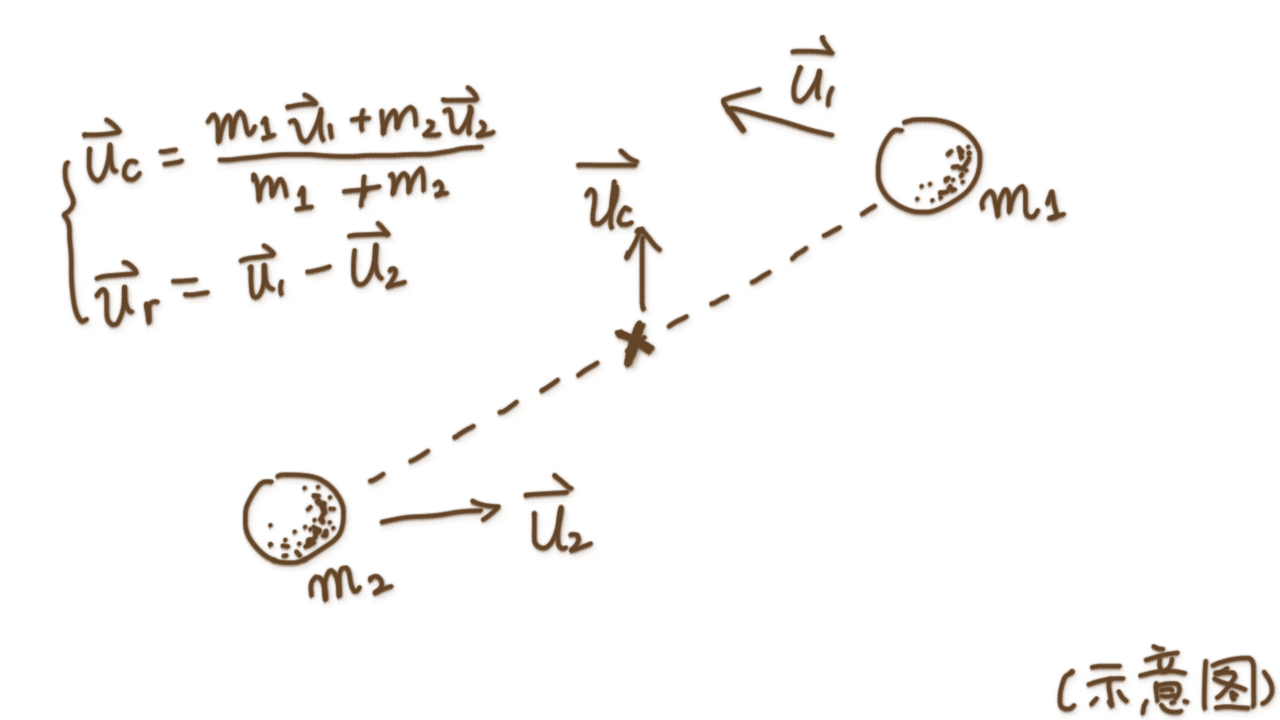 { u⃗c = (m1 u⃗1 + m2 u⃗2) / (m1 + m2)
u⃗r = u⃗1 - u⃗2
u⃗1
m1
u⃗c
u⃗2
m2
(示意图)